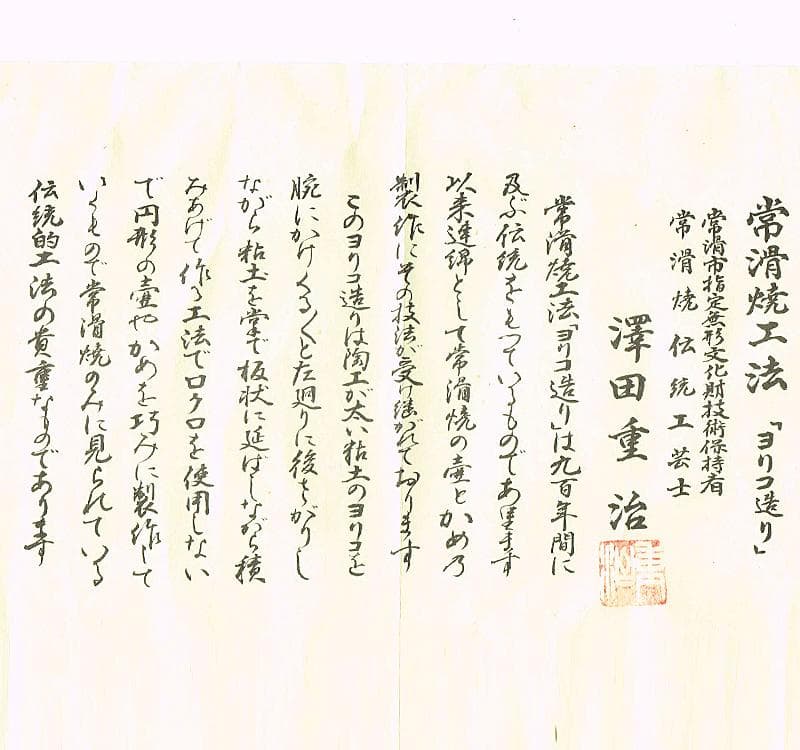 常滑焼工法「ヨリコ造り」
常滑市指定無形文化財技術保持者
常滑焼伝統工芸士
澤田重治
常滑焼工法「ヨリコ造り」は九百年間に
及ぶ伝統をもっているものであります
以来連綿として常滑焼の壷とかめの
製作にその技法が受け継がれております
このヨリコ造りは陶工が太い粘土のヨリコを
腕にかけくる〱と左廻りに後ずさりし
ながら粘土を掌で板状に延ばしながら積
みあげて作る工法でロクロを使用しない
で円形の壷やかめを巧みに製作して
いくもので常滑焼のみに見られている
伝統的工法の貴重なものであります
重治